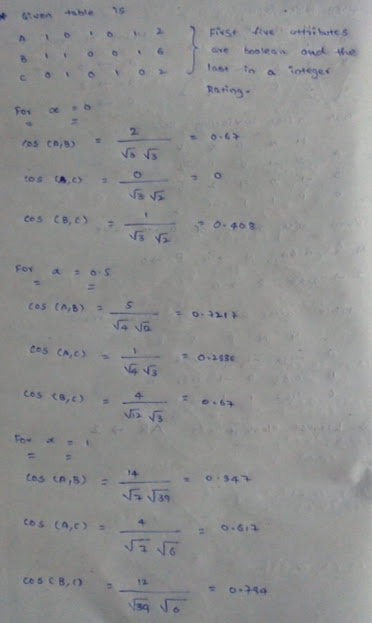 * Given table is
A 1 0 1 0 1 2 } First five attributes
B 1 1 0 0 1 6 are boolean and the
C 0 1 0 1 0 2 last in a integer
Rating.
For α = 0
cos (A,B) = 2 / √3 √3 = 0.67
cos (A,C) = 0 / √3 √2 = 0
cos (B,C) = 1 / √3 √2 = 0.408
For α = 0.5
cos (A,B) = 5 / √4 √12 = 0.7217
cos (A,C) = 1 / √4 √3 = 0.2886
cos (B,C) = 4 / √12 √3 = 0.67
For α = 1
cos (A,B) = 14 / √7 √39 = 0.847
cos (A,C) = 4 / √7 √6 = 0.617
cos (B,C) = 12 / √39 √6 = 0.784